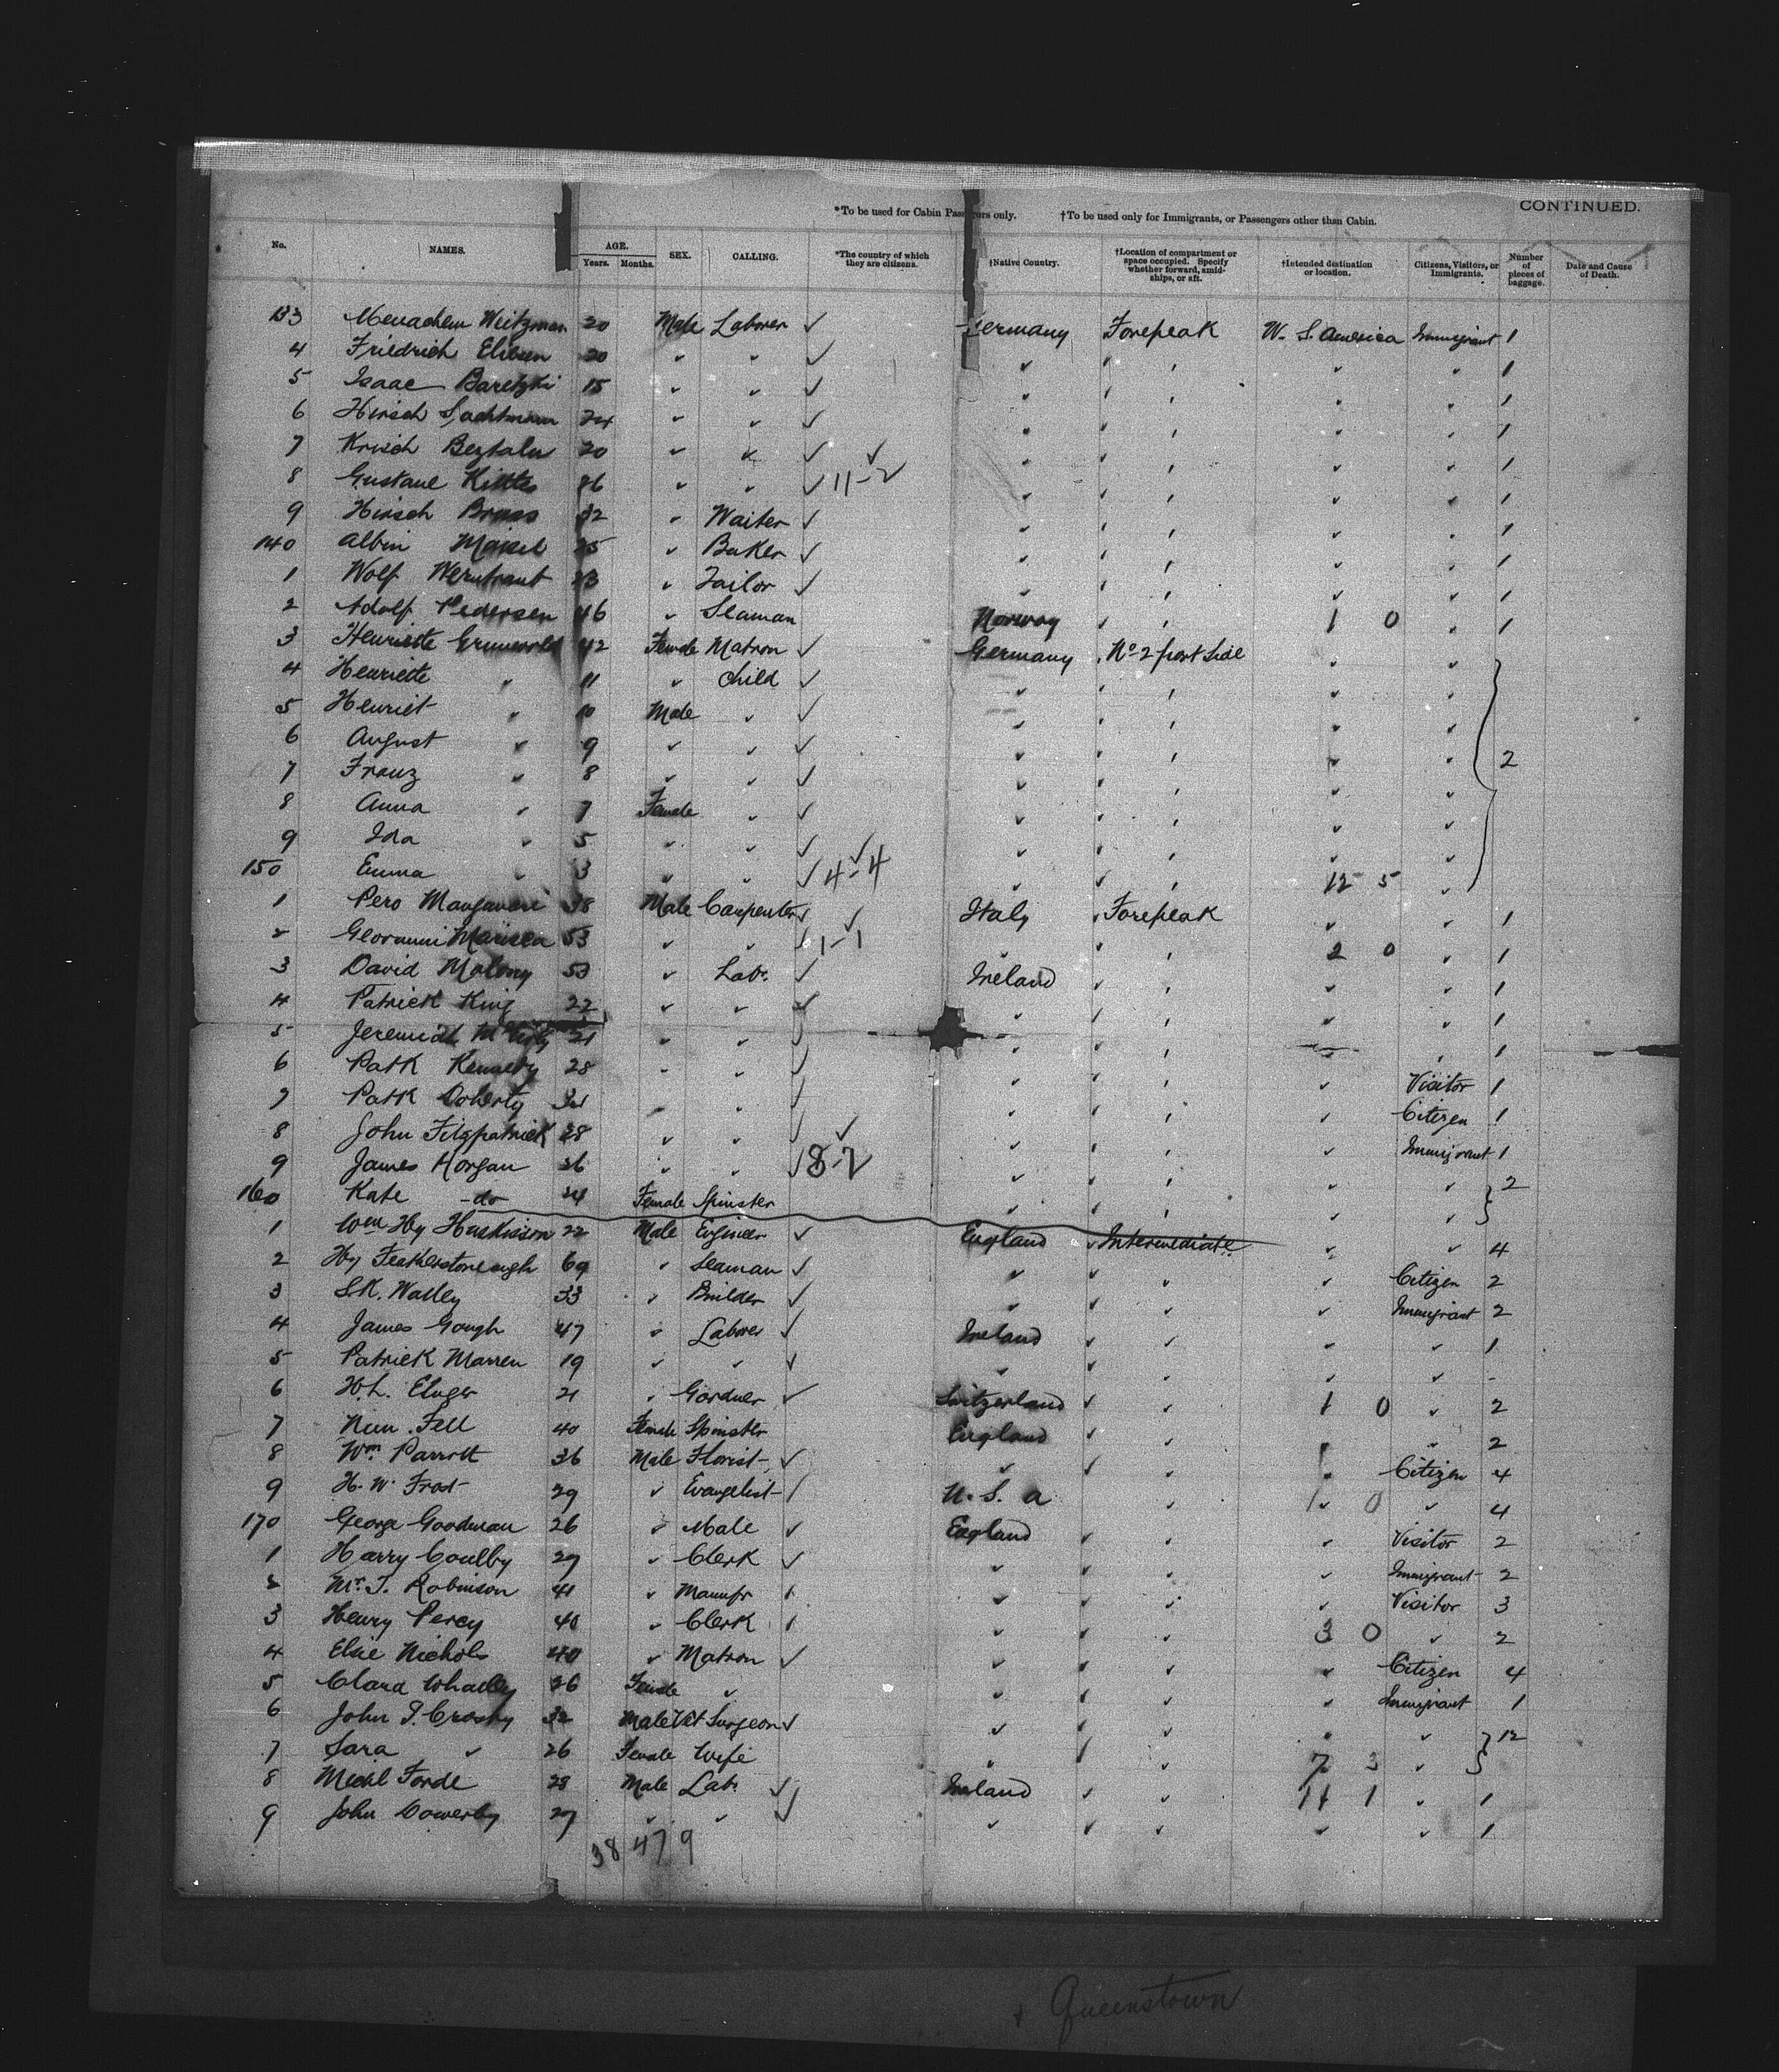 CONTINUED.
*To be used for Cabin Passengers only. †To be used only for Immigrants, or Passengers other than Cabin.
No. NAMES. AGE. Years. Months. SEX. CALLING. *The country of which they are citizens. †Native Country. †Location of compartment or space occupied. Specify whether forward, amidships, or aft. †Intended distination or location. Citizens, Visitors, or Immigrants. Number of pieces of baggage. Date and Cause of Death.
133 Menachem Weitzman 20 Male Laborer ✓ Germany Forepeak W. S. America Immigrant 1
4 Friedrich 20 " " ✓ " " " " " 1
5 Isaac Baretzki 15 " " ✓ " " " " " 1
6 Hirsch 24 " " ✓ " " " " " 1
7 20 " " ✓ " " " " " 1
8 Gustave " " ✓ 11-2 " " " " " 1
9 Hirsch 32 " Waiter ✓ " " " " " 1
140 Albin 25 " Baker ✓ " " " " " 1
1 Wolf 23 " Tailor ✓ " " " " " 1
2 Adolf Pedersen 46 " Seaman Norway " " 1 0 " 1
3 Henriette Grunwold 42 Female Matron ✓ Germany No 2 port Side " "
4 Henriette " 11 " Child ✓ " " " " "
5 Henriet " 10 Male " ✓ " " " " "
6 August " 9 " " ✓ " " " " " 2
7 Franz " 8 " " ✓ " " " " "
8 Anna " 7 Female " ✓ " " " " "
9 Ida " 5 " " ✓ " " " " "
150 Emma " 3 " " ✓ 4-4 " " " 12 5 "
1 Pero 38 Male Carpenter ✓ Italy " Forepeak " " 1
2 Geovanni 53 " " 1-1 " " " 2 0 " 1
3 David Molony 53 " Lab. ✓ Ireland " " " " 1
4 Patrick King 22 " " ✓ " " " " " 1
5 Jeremiah 21 " " ✓ " " " " " 1
6 Patk Kennedy 28 " " ✓ " " " " Visitor 1
7 Patk Doherty " " ✓ " " " " Citizen 1
8 John Fitzpatrick 28 " " ✓ " " " " Immigrant 1
9 James Horgan 26 " " ✓ 8-2 " " " " " 2
160 Kate -do 24 Female Spinster " " " " "
1 Wm Hy Huskisson 22 Male Engineer ✓ England " Intermediate " " 4
2 Hy Featherstoneaugh 69 " Seaman ✓ " " " " Citizen 2
3 S.K. Walley 33 " Builder ✓ " " " " Immigrant 2
4 James Gough 47 " Laborer ✓ Ireland " " " " 1
5 Patrick Marren 19 " " ✓ " " " " " -
6 21 " Gardner ✓ Switzerland " " 1 0 " 2
7 Fell 40 Female Spinster England " " " 2
8 Wm. Parrott 36 Male Florist ✓ " " " " Citizen 4
9 H. W. Frost 29 " Evangelist U. S. A " 1 0 " 4
170 George Goodman 26 " Male ✓ England " " " Visitor 2
1 Harry Coulby 29 " Clerk ✓ " " " " Immigrant 2
2 Mr. T. Robinson 41 " Manufr " " " " Visitor 3
3 Henry Percy 40 " Clerk " " " 3 0 " 2
4 Elsie Nichols 40 " Matron ✓ " " " " Citizen 4
5 Clara Whalley 26 Female " " " " " Immigrant 1
6 John T. Crosby 32 Male Vet Surgeon ✓ " " " " " 12
7 Sara " 26 Female Wife " " " 7 3 "
8 Michl Forde 28 Male Lab. ✓ Ireland " " 11 1 " 1
9 John 29 " " ✓ " " " " " 1
38 47 9
Queenstown